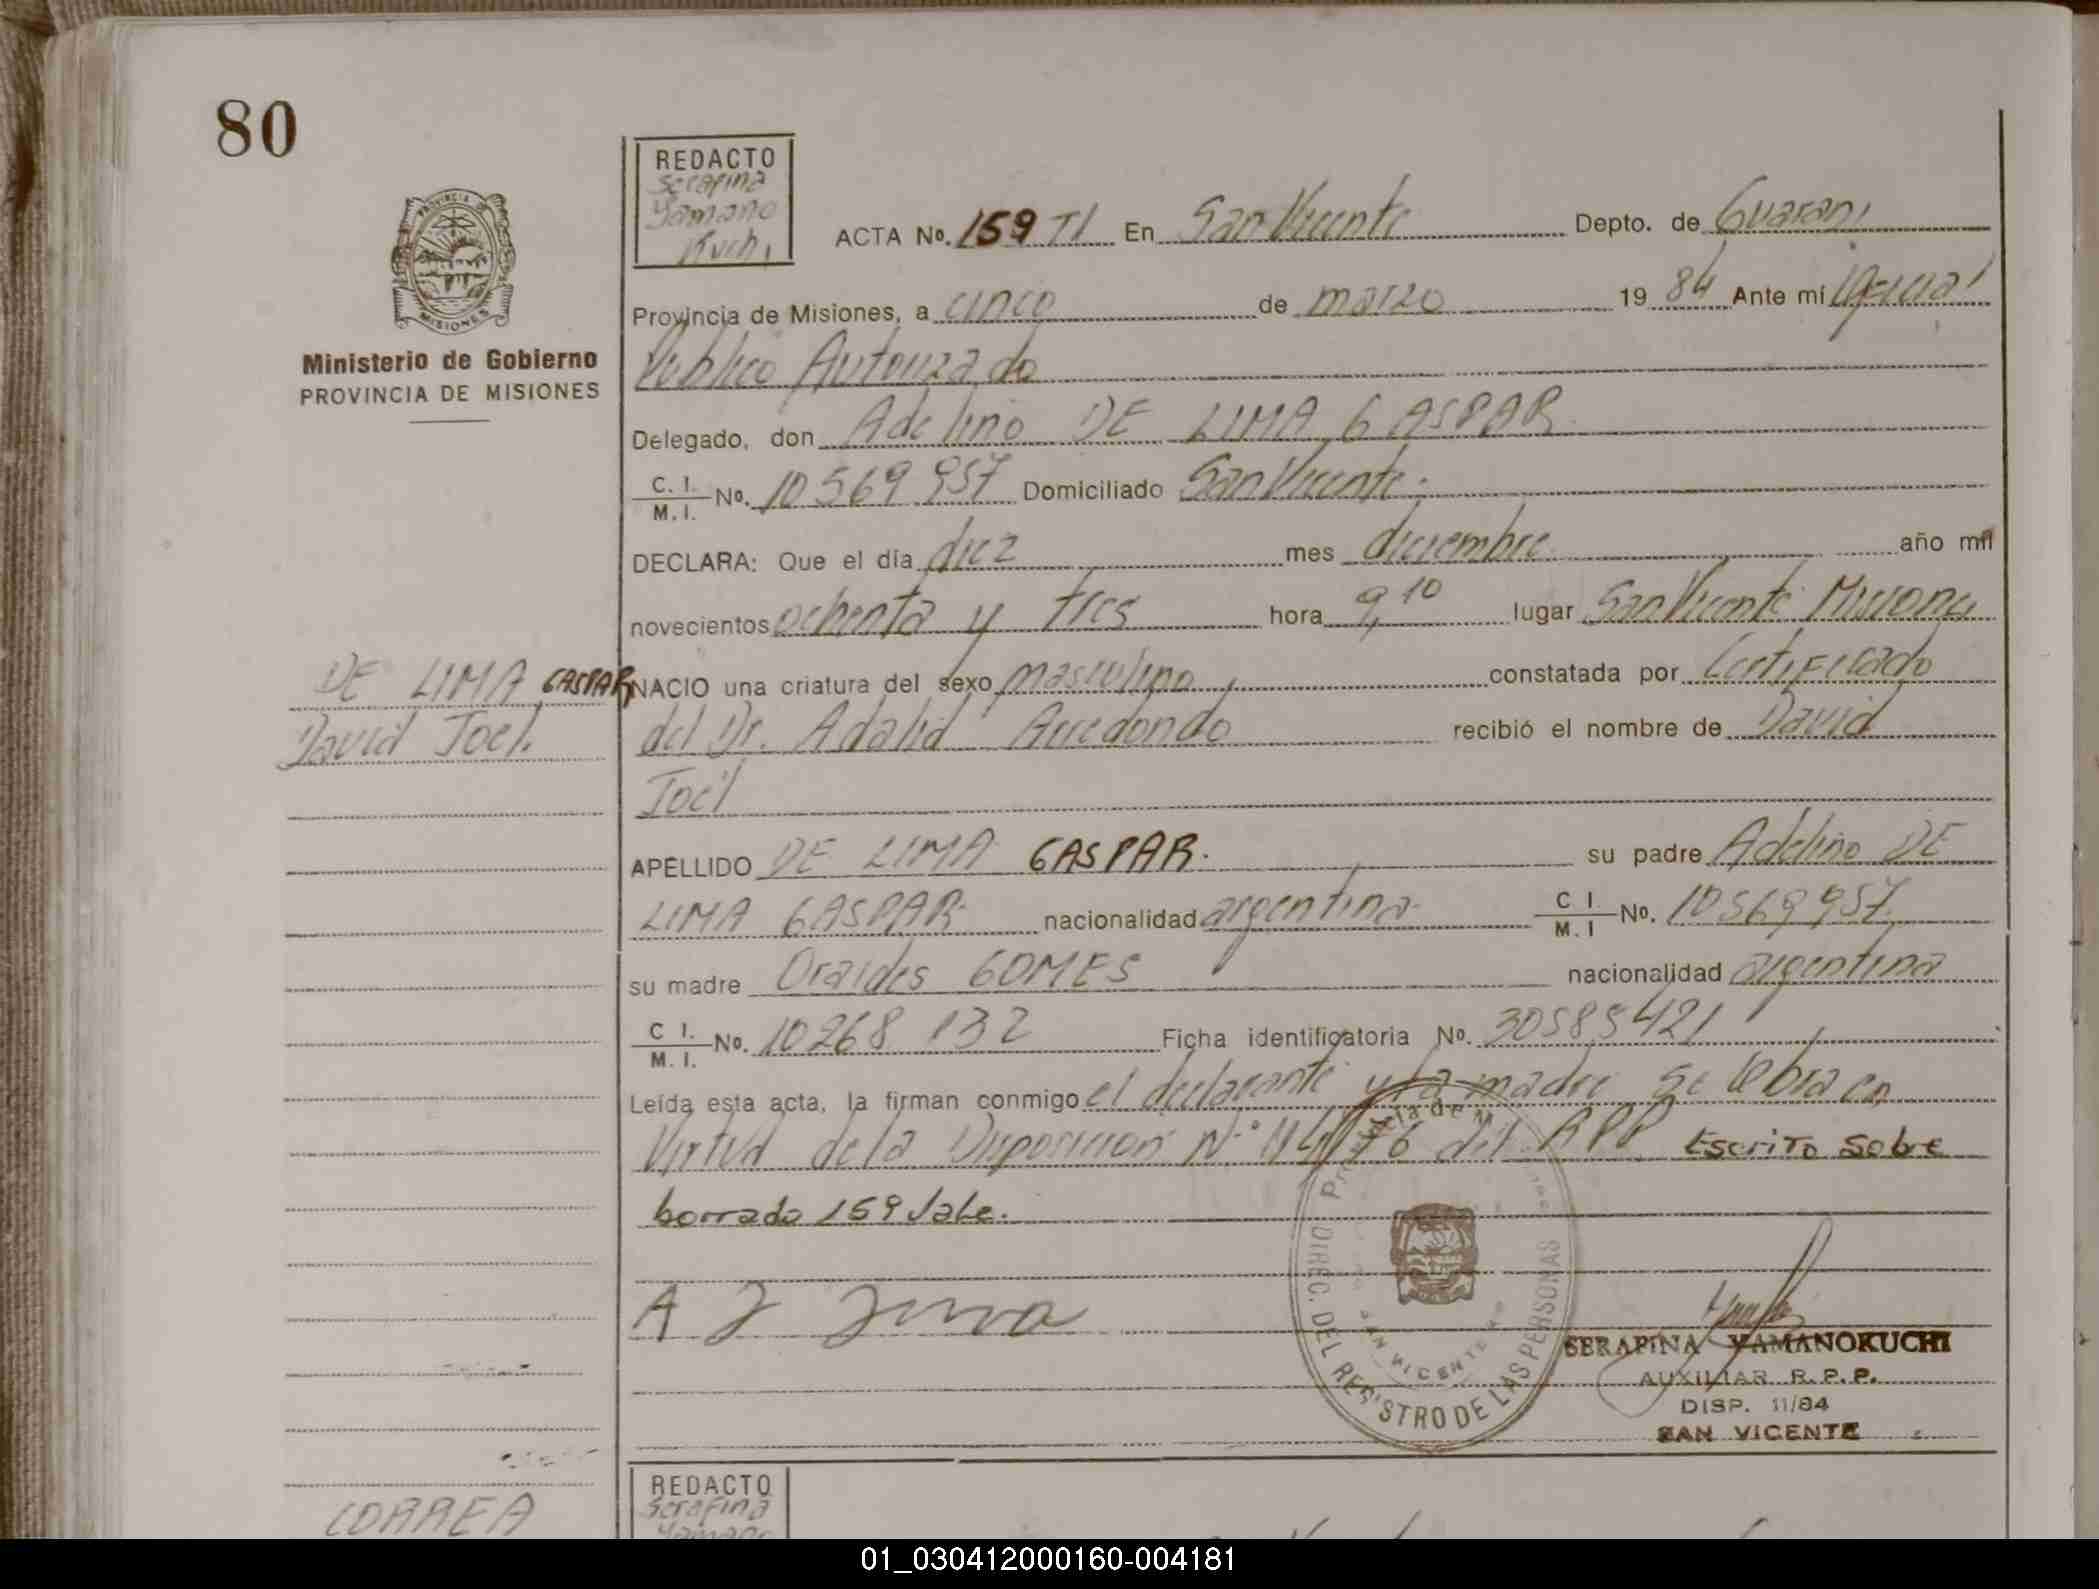 80
PROVINCIA DE
MISIONES
Ministerio de Gobierno
PROVINCIA DE MISIONES
REDACTO
Serafina
Yamano
Kuchi
ACTA No. 159 TI En San Vicente Depto. de Guarani
Provincia de Misiones, a cinco de marzo 19 84 Ante mí Oficial
Publico Autorizado
Delegado, don Adelino DE LIMA GASPAR
C. I. M. I. No. 10569957 Domiciliado San Vicente.
DECLARA: Que el día diez mes diciembre año mil
novecientos ochenta y tres hora 9,10 lugar San Vicente Misiones
DE LIMA GASPAR
David Joel.
NACIO una criatura del sexo masculino constatada por Certificado
del Dr. Adalid Arredondo recibió el nombre de David
Joel
APELLIDO DE LIMA GASPAR. su padre Adelino DE
LIMA GASPAR nacionalidad argentina C I M. I No. 10569957
su madre Oraides GOMES nacionalidad argentina
C I. M. I. No. 10268 132 Ficha identificatoria No. 30585421
Leída esta acta, la firman conmigo el declarante y la madre se labra en
Virtud de la Disposicion N° 114/76 del RPP Escrito sobre
borrado 159 Vale.
DIREC. DEL REGISTRO DE LAS PERSONAS
SAN VICENTE
SERAFINA YAMANOKUCHI
AUXILIAR R. P. P.
DISP. 11/84
SAN VICENTE
CORREA
REDACTO
Serafina
Yamano
01_030412000160-004181